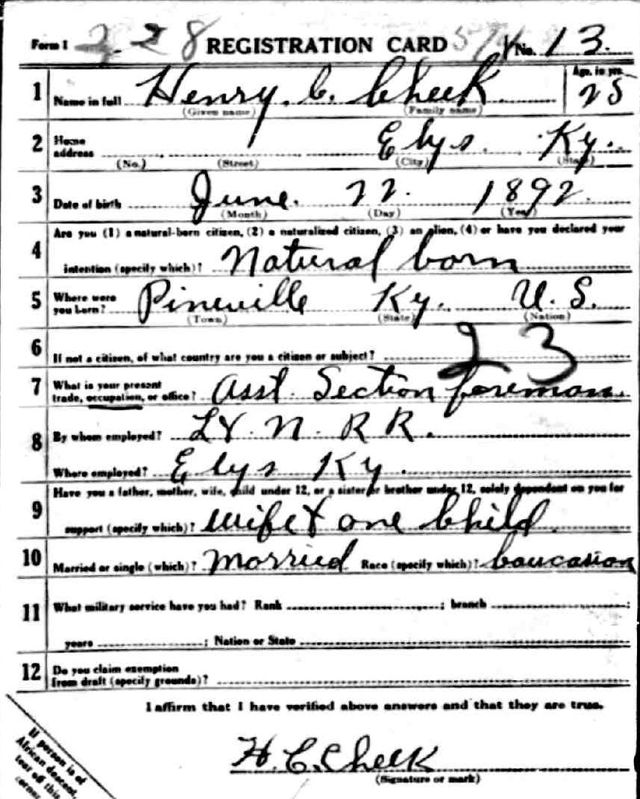 Form 1 2-28 REGISTRATION CARD No. 13
1 Name in full Henry C. Cheek Age, in yrs. 25
(Given name) (Family name)
2 Home address Elys. Ky.
(No.) (Street) (City) (State)
3 Date of birth June. 22. 1892.
(Month) (Day) (Year)
4 Are you (1) a natural-born citizen, (2) a naturalized citizen, (3) an alien, (4) or have you declared your
intention (specify which)? Natural born
5 Where were you born? Pineville Ky. U.S.
(Town) (State) (Nation)
6 If not a citizen, of what country are you a citizen or subject? 23
7 What is your present trade, occupation, or office? Asst. Section foreman.
8 By whom employed? L & N. R R.
Where employed? Elys Ky.
9 Have you a father, mother, wife, child under 12, or a sister or brother under 12, solely dependent on you for
support (specify which)? Wife & one Child
10 Married or single (which)? Married Race (specify which)? Caucasian
11 What military service have you had? Rank ; branch ;
years ; Nation or State
12 Do you claim exemption from draft (specify grounds)?
I affirm that I have verified above answers and that they are true.
H.C. Cheek
(Signature or mark)
If person is of
African descent,
tear off this
corner